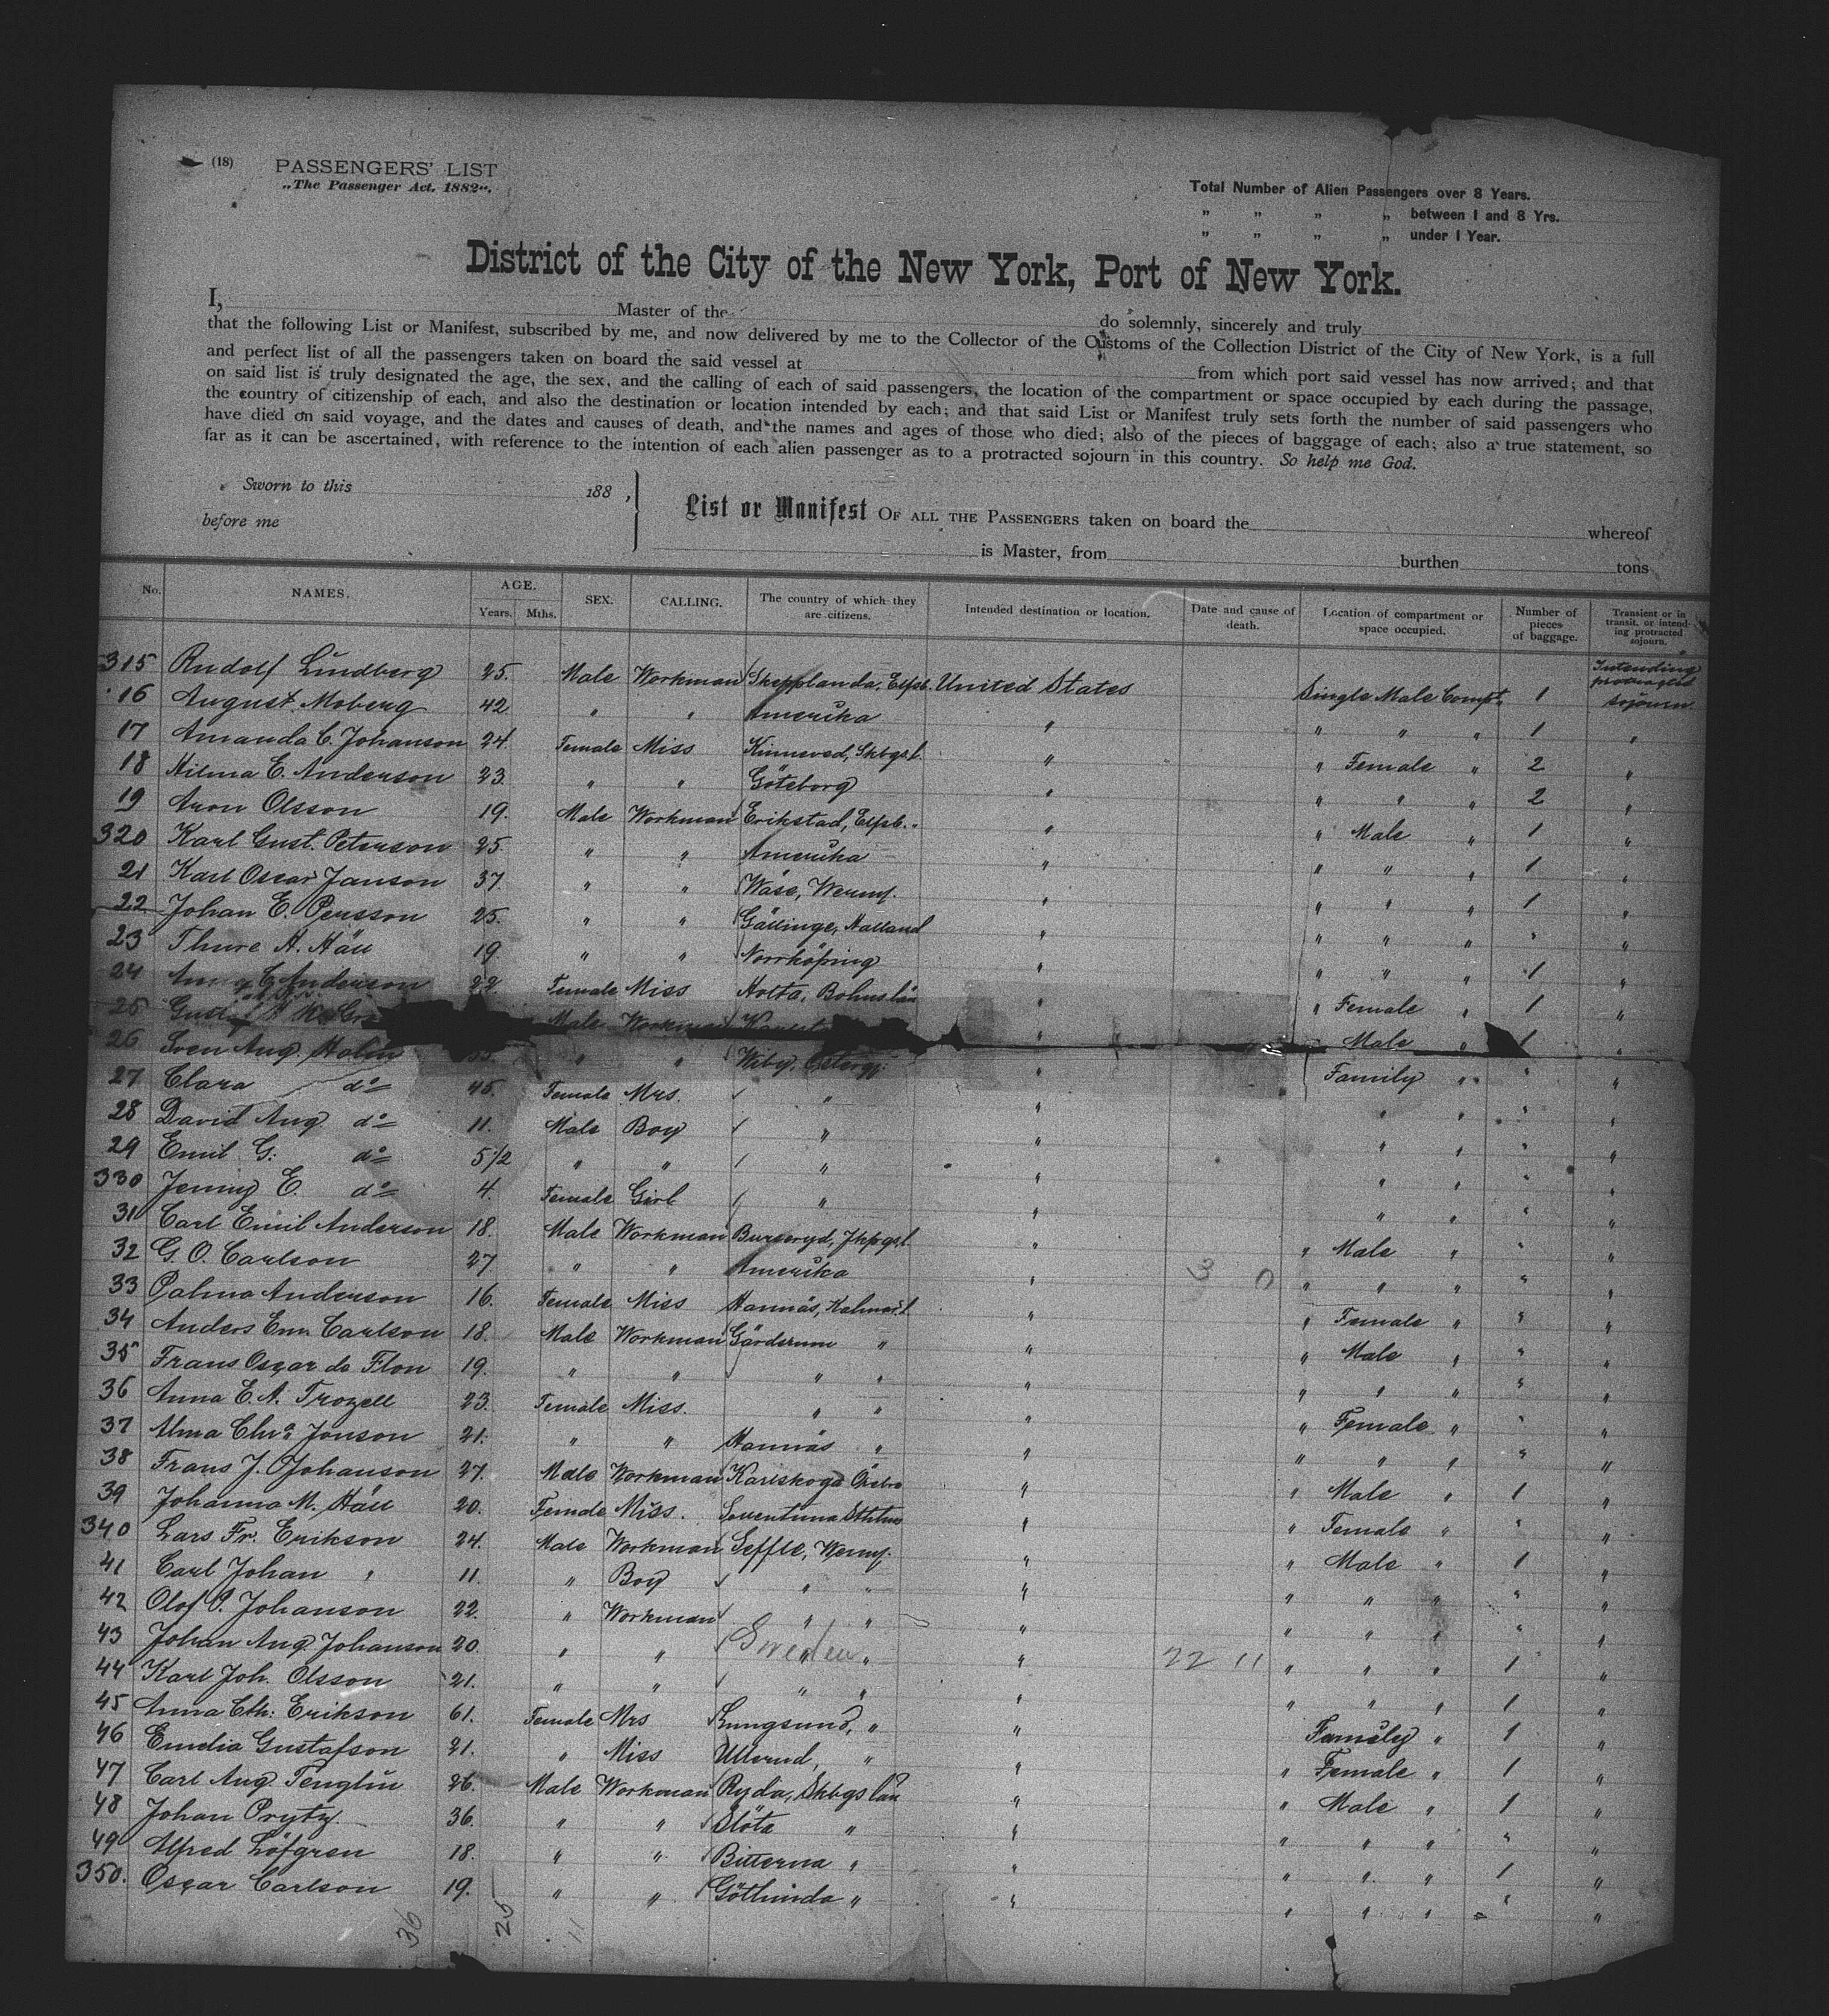 (18) PASSENGERS' LIST
„The Passenger Act. 1882“.
Total Number of Alien Passengers over 8 Years.
„ „ „ „ between 1 and 8 Yrs.
„ „ „ „ under 1 Year.
District of the City of the New York, Port of New York.
I, Master of the do solemnly, sincerely and truly
that the following List or Manifest, subscribed by me, and now delivered by me to the Collector of the Customs of the Collection District of the City of New York, is a full
and perfect list of all the passengers taken on board the said vessel at from which port said vessel has now arrived; and that
on said list is truly designated the age, the sex, and the calling of each of said passengers, the location of the compartment or space occupied by each during the passage,
the country of citizenship of each, and also the destination or location intended by each; and that said List or Manifest truly sets forth the number of said passengers who
have died on said voyage, and the dates and causes of death, and the names and ages of those who died; also of the pieces of baggage of each; also a true statement, so
far as it can be ascertained, with reference to the intention of each alien passenger as to a protracted sojourn in this country. So help me God.
Sworn to this 188 ,
before me
List or Manifest OF ALL THE PASSENGERS taken on board the whereof
is Master, from burthen tons
No. NAMES. AGE. Years. Mths. SEX. CALLING. The country of which they are citizens. Intended destination or location. Date and cause of death. Location of compartment or space occupied. Number of pieces of baggage. Transient or in transit, or intending protracted sojourn.
315 Rudolf Lindberg 25. Male Workman Skepplanda, Elfsb. United States Single Male Compt. 1 Intending protracted sojourn
16 August Moberg 42 " " Amerika " " " " 1 "
17 Amanda C. Johanson 24. Female Miss Kinneved, Skbgs.l. " " Female " 2 "
18 Hilma E. Anderson 23. " " Göteborg " " " " 2 "
19 Aron Olsson 19. Male Workman Erikstad, Elfsb. " " Male " 1 "
320 Karl Gust. Peterson 25. " " Amerika " " " " 1 "
21 Karl Oscar Janson 37. " " Wäse, Werml. " " " " 1 "
22 Johan E. Persson 25. " " Gällinge, Halland " " " " " "
23 Thure H. Häll 19. " " Norrköping " " " " 1 "
24 Anna C. Anderson 22. Female Miss Holta, Bohuslän " " Female " 1 "
25 Gustaf Male Workman " Male " 1 "
26 Sven Aug. Holm " " Wiby, Östergj. " Family " " "
27 Clara do 45. Female Mrs. " " " " " "
28 David Aug do 11. Male Boy " " " " " "
29 Emil G. do 5 1/2 " " " " " " " "
330 Jenny E. do 4. Female Girl " " " " " "
31 Carl Emil Anderson 18. Male Workman Burseryd, Jkpgs.l. " " Male " " "
32 G. O. Carlson 27 " " Amerika " 3 0 " " " " "
33 Palma Anderson 16. Female Miss Hannäs, Kalmar.l. " " Female " " "
34 Anders Em. Carlson 18. Male Workman Gärdserum " " " Male " " "
35 Frans Oscar de Flon 19. " " " " " " " " " "
36 Anna E. A. Trozell 23. Female Miss. " " " " Female " " "
37 Alma Chra Jonson 21. " " Hannäs " " " " " " "
38 Frans J. Johanson 27. Male Workman Karlskoga Örebro " " Male " 1 "
39 Johanna M. Häll 20. Female Miss. Soventuna " " Female " " "
340 Lars Fr. Erikson 24. Male Workman Seffle, Werml. " " Male " 1 "
41 Carl Johan " 11. " Boy " " " " " " " "
42 Olof P. Johanson 22. " Workman " " " " " " " "
43 Johan Aug. Johanson 20. " " Sweden " " " 22 11 " " " 1 "
44 Karl Joh. Olsson 21. " " " " " " " " 1 "
45 Anna Cth. Erikson 61. Female Mrs Lungsund, " " Family " 1 "
46 Emelia Gustafson 21. " Miss Ullerud, " " " Female " 1 "
47 Carl Aug. Tenglin 26. Male Workman Ryda, Skbgs län " " Male " 1 "
48 Johan Prytz. 36. " " Slöta " " " " " " "
49 Alfred Löfgren 18. " " Bitterna " " " " " 1 "
350. Oscar Carlson 19. " " Göthunda " " " " " " "
36 25 11